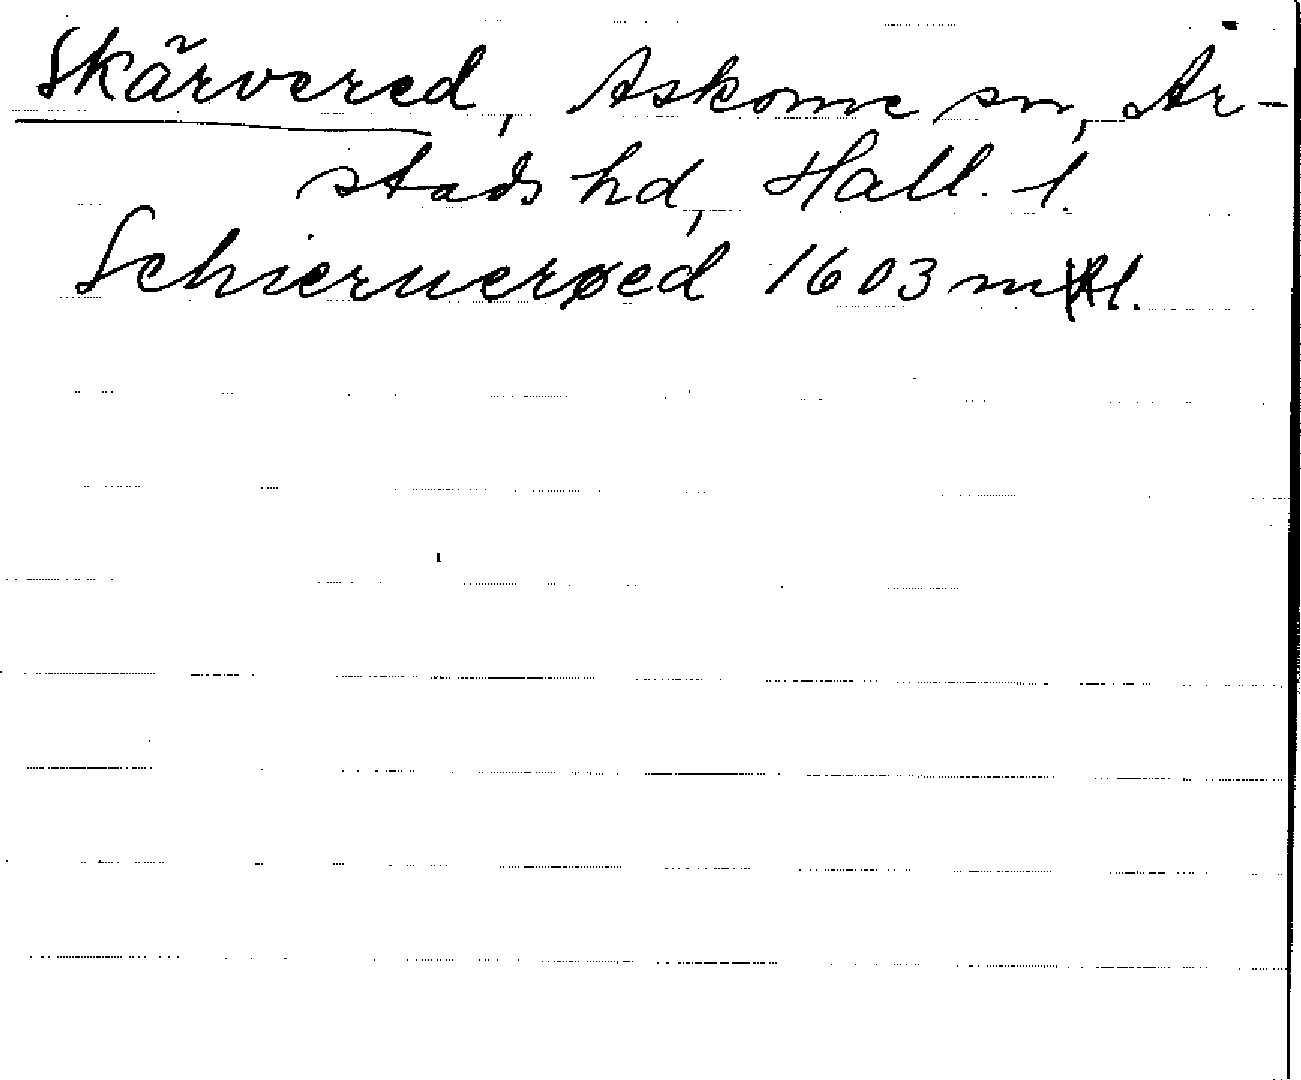 Skärvered, Askome sn, År-
stads hd, Hall. l.
Schieruerøed 1603